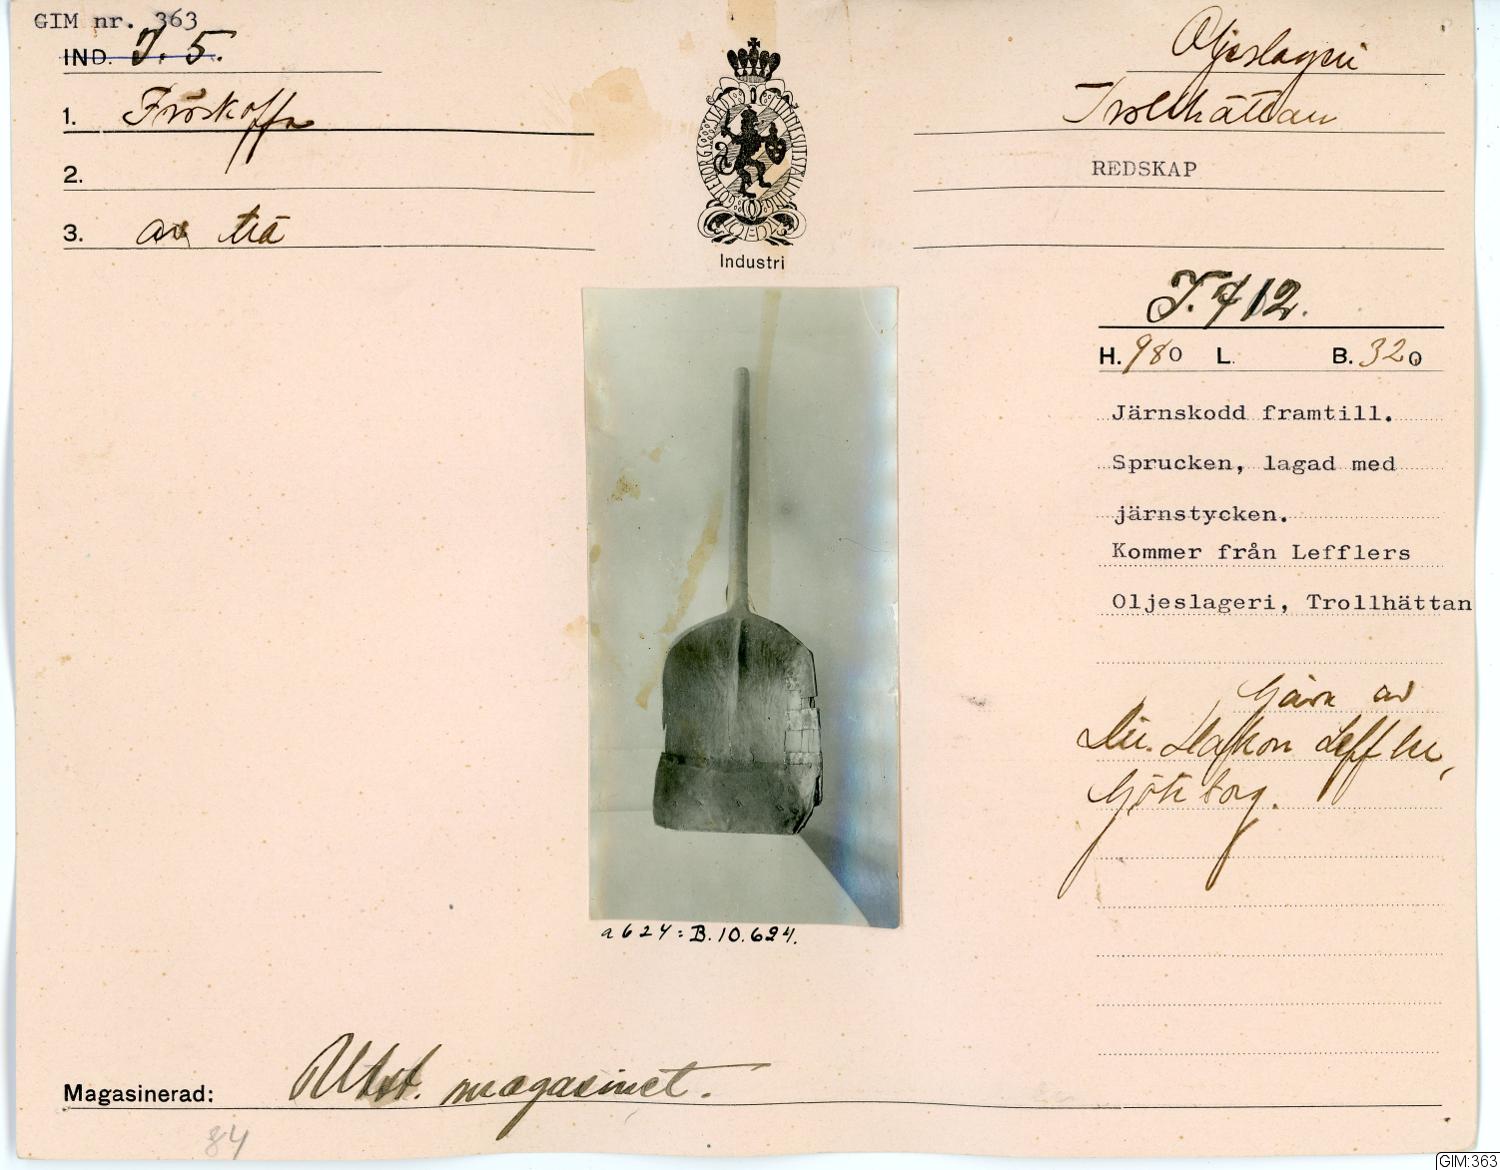 GIM nr. 363
IND. I. 5.
1. Fröskoffa
2.
3. av trä
GÖTEBORGS STADS MINNESUTSTÄLLNING
Industri
Oljeslageri
Trollhättan
REDSKAP
I. 412.
H. 980 L. B. 320
Järnskodd framtill.
Sprucken, lagad med
järnstycken.
Kommer från Lefflers
Oljeslageri, Trollhättan
Gåva av
Dir. Hakon Leffler,
Göteborg.
a 624: B.10.624.
Magasinerad: Utst. magasinet.
84
GIM:363